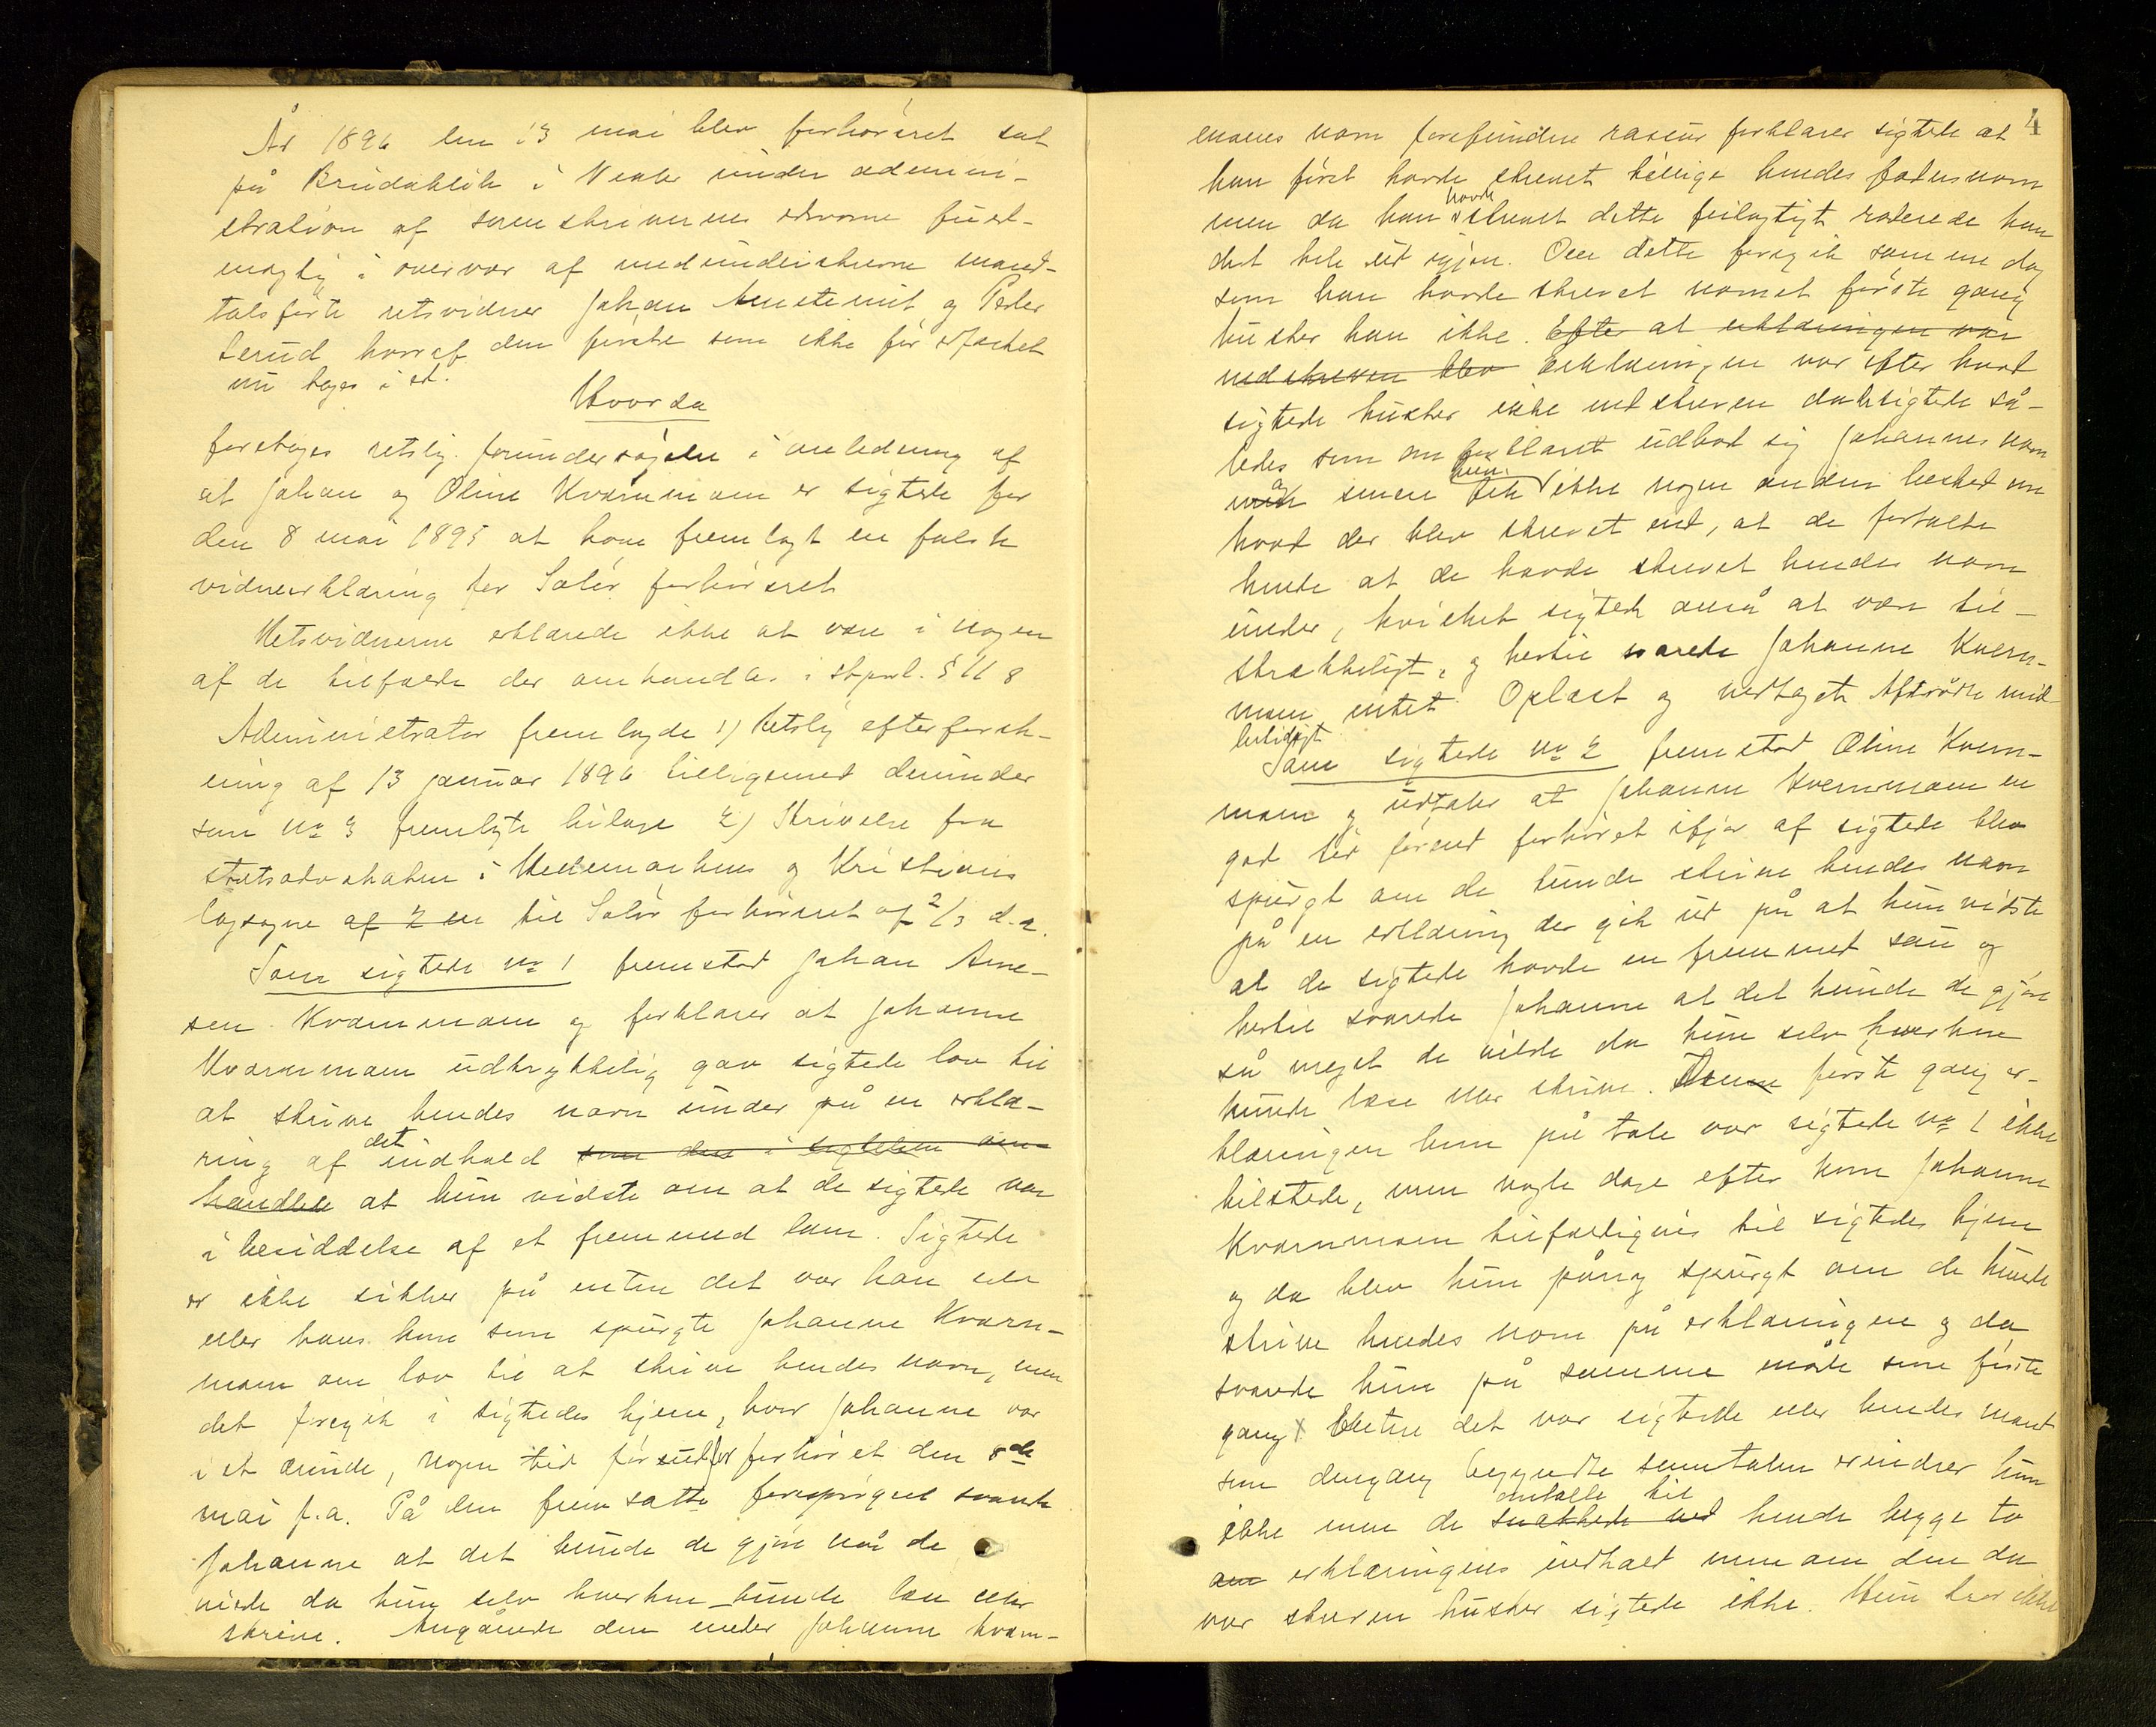 År 1896 den 13 mai blev forhörsret sat
på Brudaklik i Vaaler under admini-
stration af sorenskriverens edsvorne fuld-
mægtig i overvær af medunderskrevne mand-
talsförte retsvidner Johan og Peder
hvoraf den förste som ikke för edfæstet
nu toges i ed.
Hvorda
foretoges retslig forundersögelse i anledning af
at Johan og Oline Kværnmoen er sigtede for
den 8 mai 1895 at have fremlagt en falsk
vidneerklæring for Solör forhörsret
Retsvidnerne erklærede ikke at være i nogen
af de tilfælde der omhandles i stprl. § 118
Administrator fremlagde 1) Retslig efterforsk-
ning af 13 januar 1896 tilligemed derunder
som No 3 fremlagte bilage 2) Skrivelse fra
statsadvokaten i Hedemarkens og Kristians
lagsogne af 2 en til Solör forhörsret af 2/3 d.a.
Som sigtede No 1 fremstod Johan Arne-
sen Kvernmoen og forklarer at Johanne
Kværnmoen udtrykkelig gav sigtede lov til
at skrive hendes navn under på en erklæ-
ring af det indhold som den i sigtelsen om-
handlede at hun vidste om at de sigtede var
i besiddelse af et fremmed lam. Sigtede
er ikke sikker på enten det var han selv
eller hans kone som spurgte Johanne Kværn-
moen om lov til at skrive hendes navn, men
det foregik i sigtedes hjem, hvor Johanne var
i et ærinde, nogen tid förend for forhöret den 8de
mai f.a. På den fremsatte forespörgsel svarede
Johanne at det kunde de gjöre når de
vilde da hun selv hverken kunde læse eller
skrive. Angående den under Johanne Kværn-
4
moens navn forefundne rasur forklarer sigtede at
han först havde skrevet tillige hendes farsnavn
men da han havde skrevet dette feilagtigt raderede han
det hele ud igjen. Om dette foregik samme dag
som han havde skrevet navnet förste gang
husker han ikke. Efter at erklæringen var
nedskreven blev Erklæringen var efter hvad
sigtede husker ikke nedskreven da sigtede så-
ledes som om forklaret udbad sig Johannes navn
og senere fik hun ikke nogen anden besked om
hvad der blev skrevet end, at de fortalte
hende at de havde skrevet hendes navn
under, hvilket sigtede anså at være til-
strækkeligt, og hertil svarede Johanne Kværn-
moen intet. Oplæst og vedtaget. Aftrådte mid-
lertidigt
Som sigtede No 2 fremstod Oline Kværn-
moen og udtaler at Johanne Kvernmoen en
god tid förend forhöret ifjor af sigtede blev
spurgt om de kunde skrive hendes navn
på en erklæring der gik ud på at hun vidste
at de sigtede havde en fremmed sau og
hertil svarede Johanne at det kunde de gjöre
så meget de vilde da hun selv hverken
kunde læse eller skrive. Denne förste gang er-
klæringen kom på tale var sigtede No 1 ikke
tilstede, men nogle dage efter kom Johanne
Kværnmoen tilfældigvis til sigtedes hjem
og da blev hun påny spurgt om de kunde
skrive hendes navn på erklæringen og da
svarede hun på samme måde som förste
gang Enten det var sigtede eller hendes mand
som dengang begyndte samtalen erindrer hun
ikke men de omtalte til snakkede ved hende begge to
om erklæringens indhold men om den da
var skreven husker sigtede ikke. Hun tror ikke